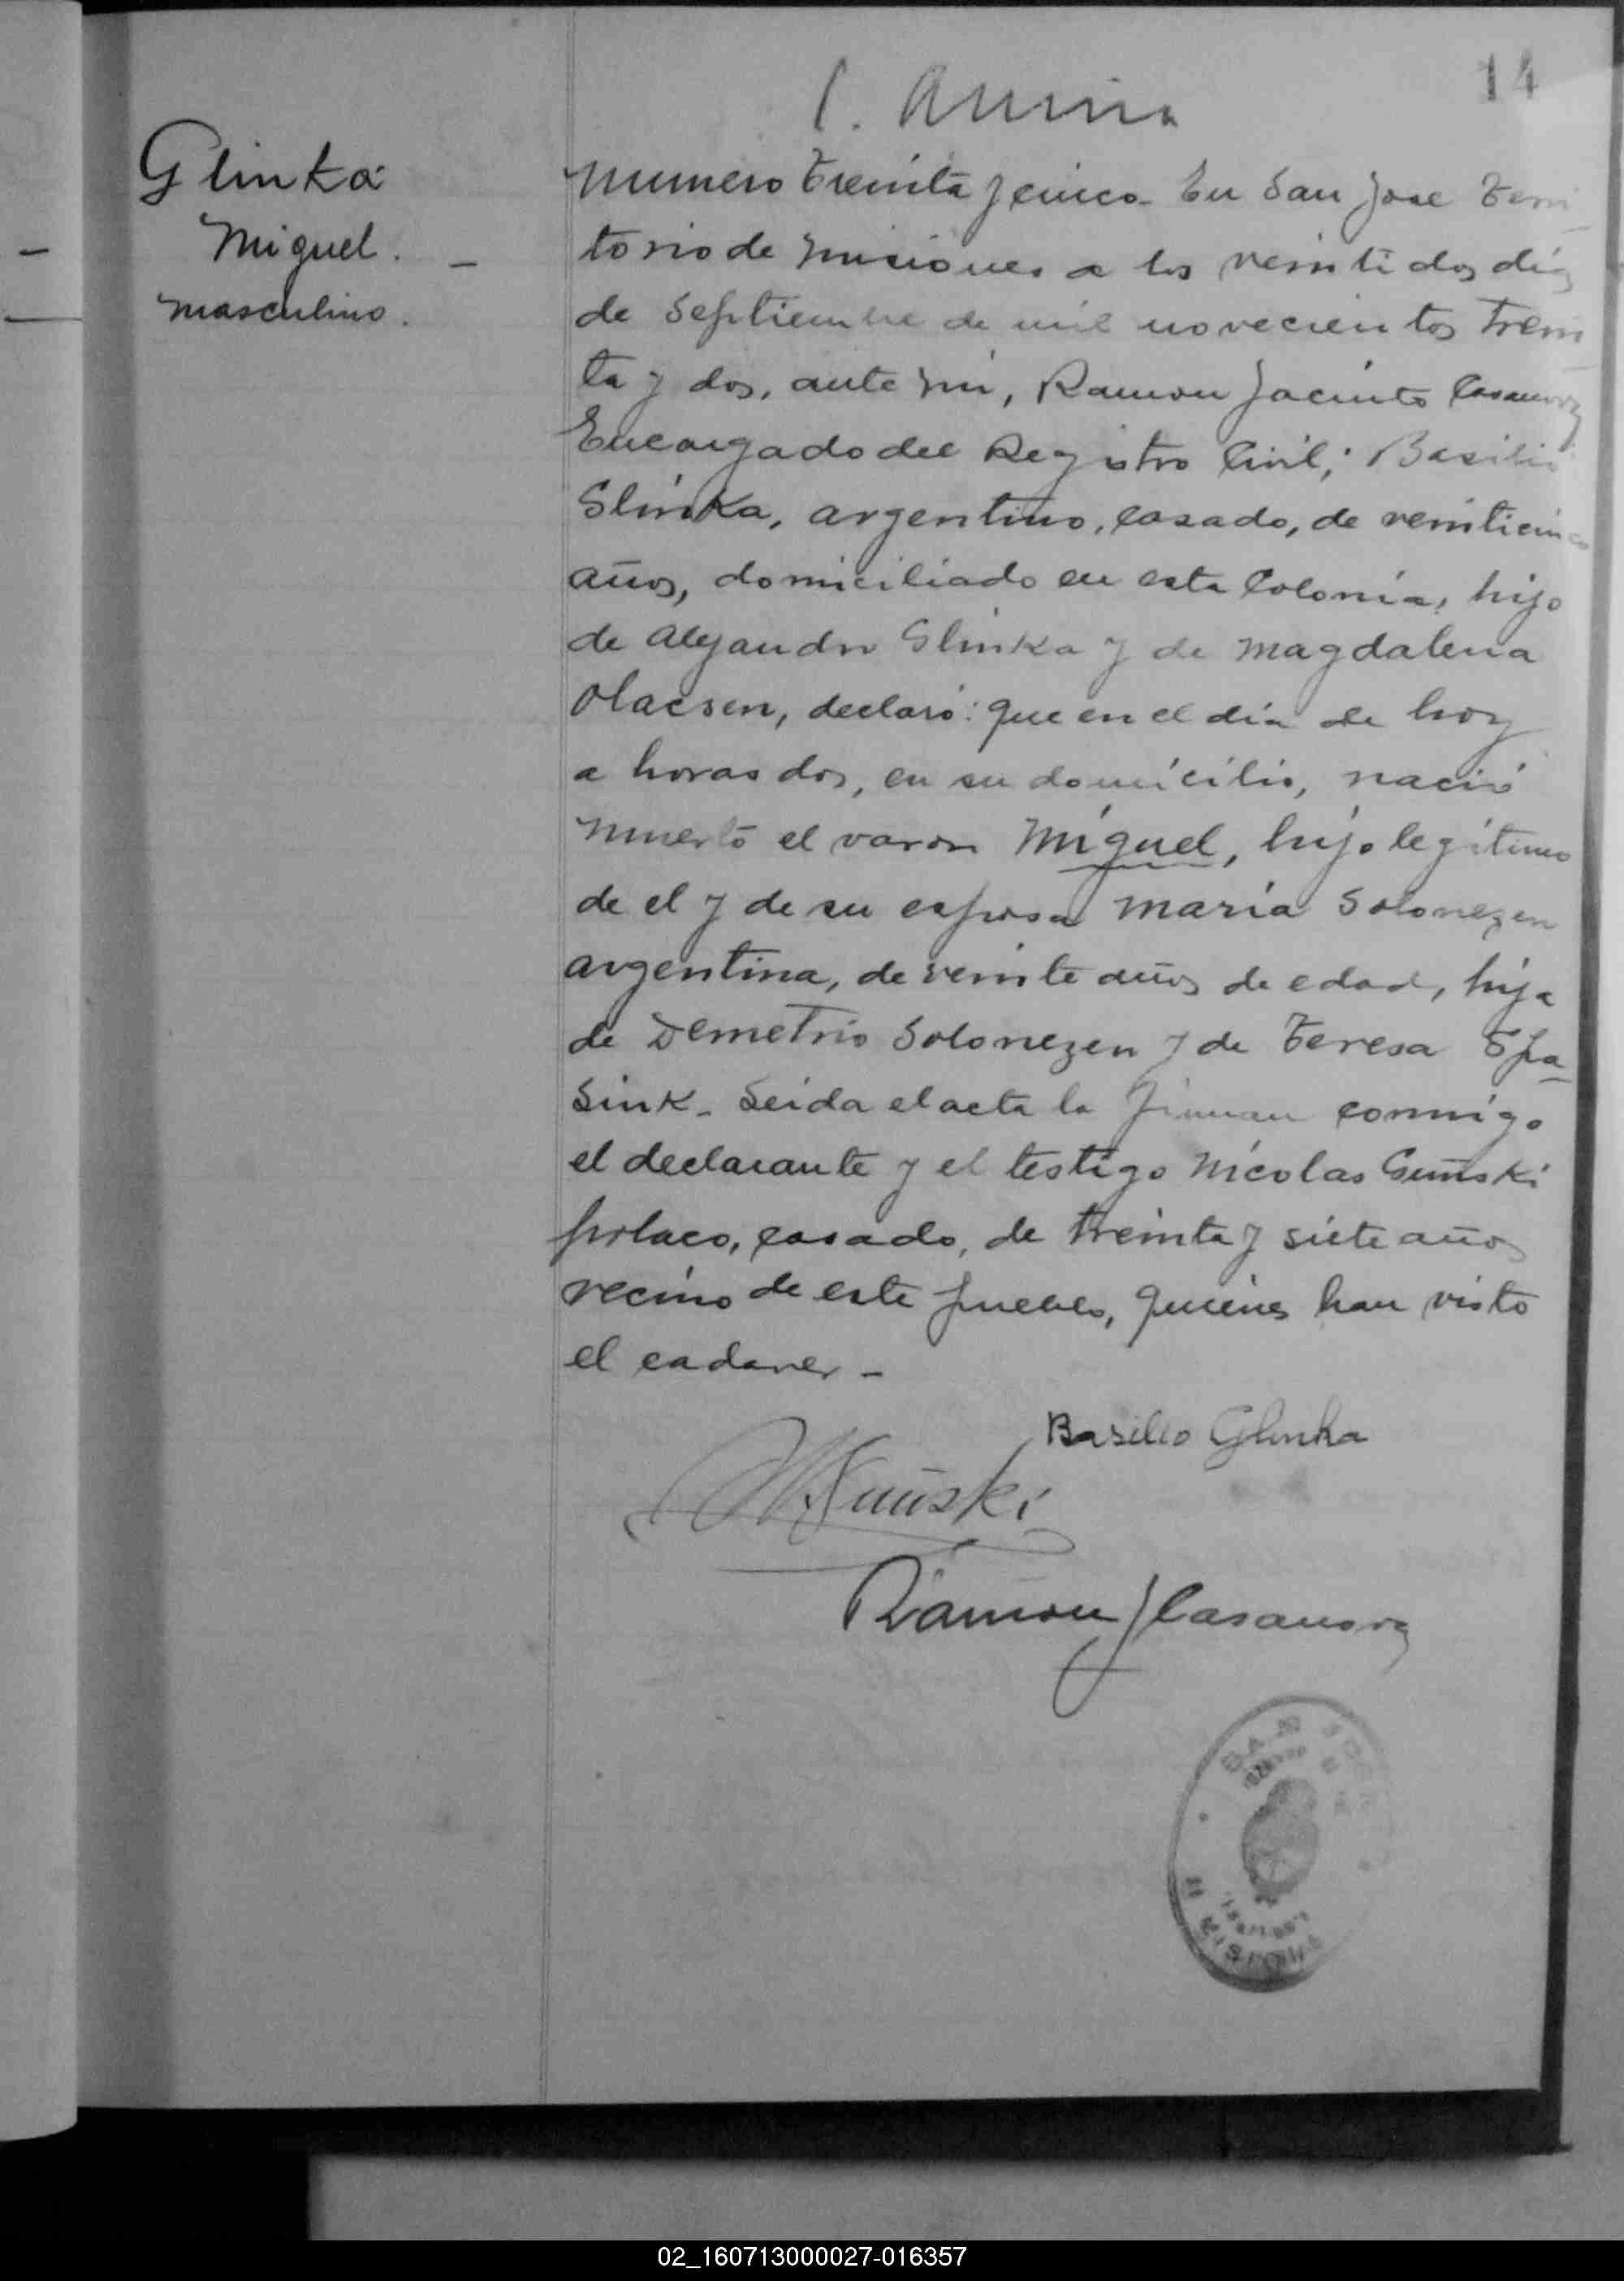 14
Glinka
Miguel.
masculino.
Numero treinta y cinco. En San Jose Terri
torio de Misiones a los veintidos dias
de Septiembre de mil novecientos trein
ta y dos, ante mi, Ramon Jacinto Casanova
Encargado del Registro Civil; Basilio
Glinka, argentino, casado, de veinticinco
años, domiciliado en esta Colonia, hijo
de Alejandro Glinka y de Magdalena
Olacsen, declaró: que en el dia de hoy
a horas dos, en su domicilio, nació
muerto el varon Miguel, hijo legitimo
de el y de su esposa Maria Solonezen
argentina, de veinte años de edad, hija
de Demetrio Solonezen y de Teresa Spa-
sink. Leida el acta la firman conmigo
el declarante y el testigo Nicolas Guñski
polaco, casado, de treinta y siete años
vecino de este pueblo, quienes han visto
el cadaver -
Basilio Glinka
Ramon J Casanova
SAN JOSE
MISIONES
02_160713000027-016357